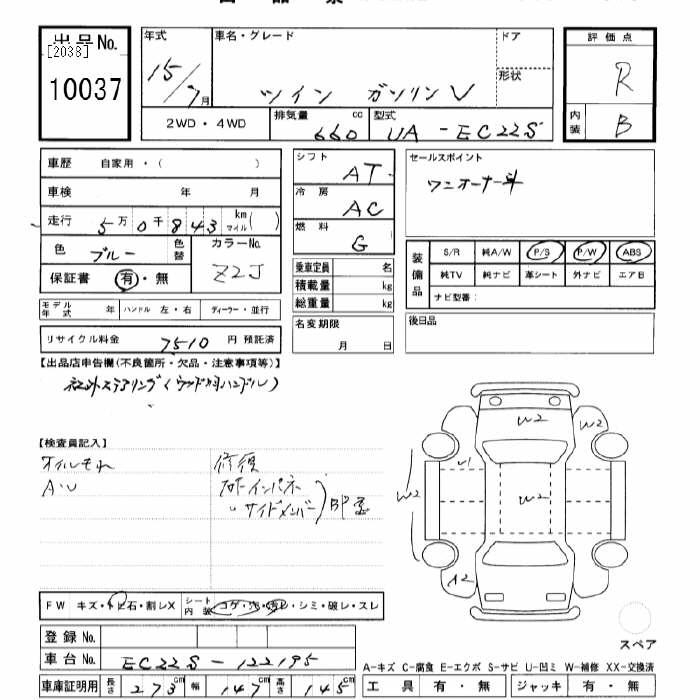 出品No.
[2038]
10037
年式
15/7月
車名・グレード
ツイン ガソリンV
ドア
形状
評価点
R
内装
B
2WD・4WD
排気量
660
cc
型式
UA-EC22S
車歴 自家用・( )
車検 年 月
走行 5万0千843 km マイル( )
色 ブルー 色替
カラーNo.
Z2J
保証書 有・無
モデル年式 年 ハンドル 左・右 ディーラー・並行
リサイクル料金 7510 円 預託済
シフト
AT
冷房
AC
燃料
G
乗車定員 名
積載量 kg
総重量 kg
名変期限
月 日
セールスポイント
ワンオーナー車
装備品
S/R 純A/W P/S P/W ABS
純TV 純ナビ 革シート 外ナビ エアB
ナビ型番:
後日品
【出品店申告欄(不良箇所・欠品・注意事項等)】
社外ステアリング(ウッド調ハンドル)
【検査員記入】
オイルモレ
A・U
修復
インパネ
サイドメンバー
BP歪
W2
W2
U1
W2
W2
A2
スペア
FW キズ・トビ石・割レX
シート内装 コゲ・穴・汚レ・シミ・破レ・スレ
登録No.
車台No. EC22S-122195
車庫証明用 長さ 273cm 幅 147cm 高さ 145cm
A-キズ C-腐食 E-エクボ S-サビ U-凹ミ W-補修 XX-交換済
工具 有・無 ジャッキ 有・無